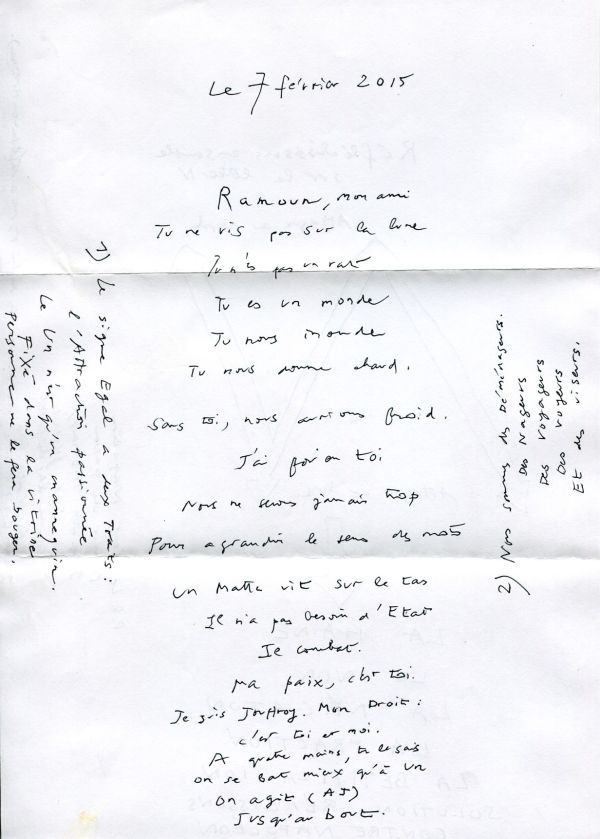 Le 7 février 2015
Ramoun, mon ami
Tu ne vis pas sur la lune
Tu n'es pas un rat
Tu es un monde
Tu nous inonde
Tu nous donne chaud.
Sans toi, nous aurions froid.
J'ai foi en toi
Nous ne serons jamais trop
Pour agrandir le sens des mots
Un Matta vit sur le tas
Il n'a pas besoin d'Etat
Ie combat.
Ma paix, c'est toi.
Je suis Jouffroy. Mon Droit :
c'est toi et moi.
A quatre mains, tu le sais
on se bat mieux qu'à un
On agit (AJ)
Jusqu'au bout.
1) Le signe Egal a deux Traits :
l'Attraction passionnée
Le Un n'est qu'un mannequin.
Fixé dans la vitrine
Personne ne le fera bouger.
2) Nous sommes des Déménageurs.
Des Nageurs
Des voyageurs
Des voyeurs
Et des viseurs.